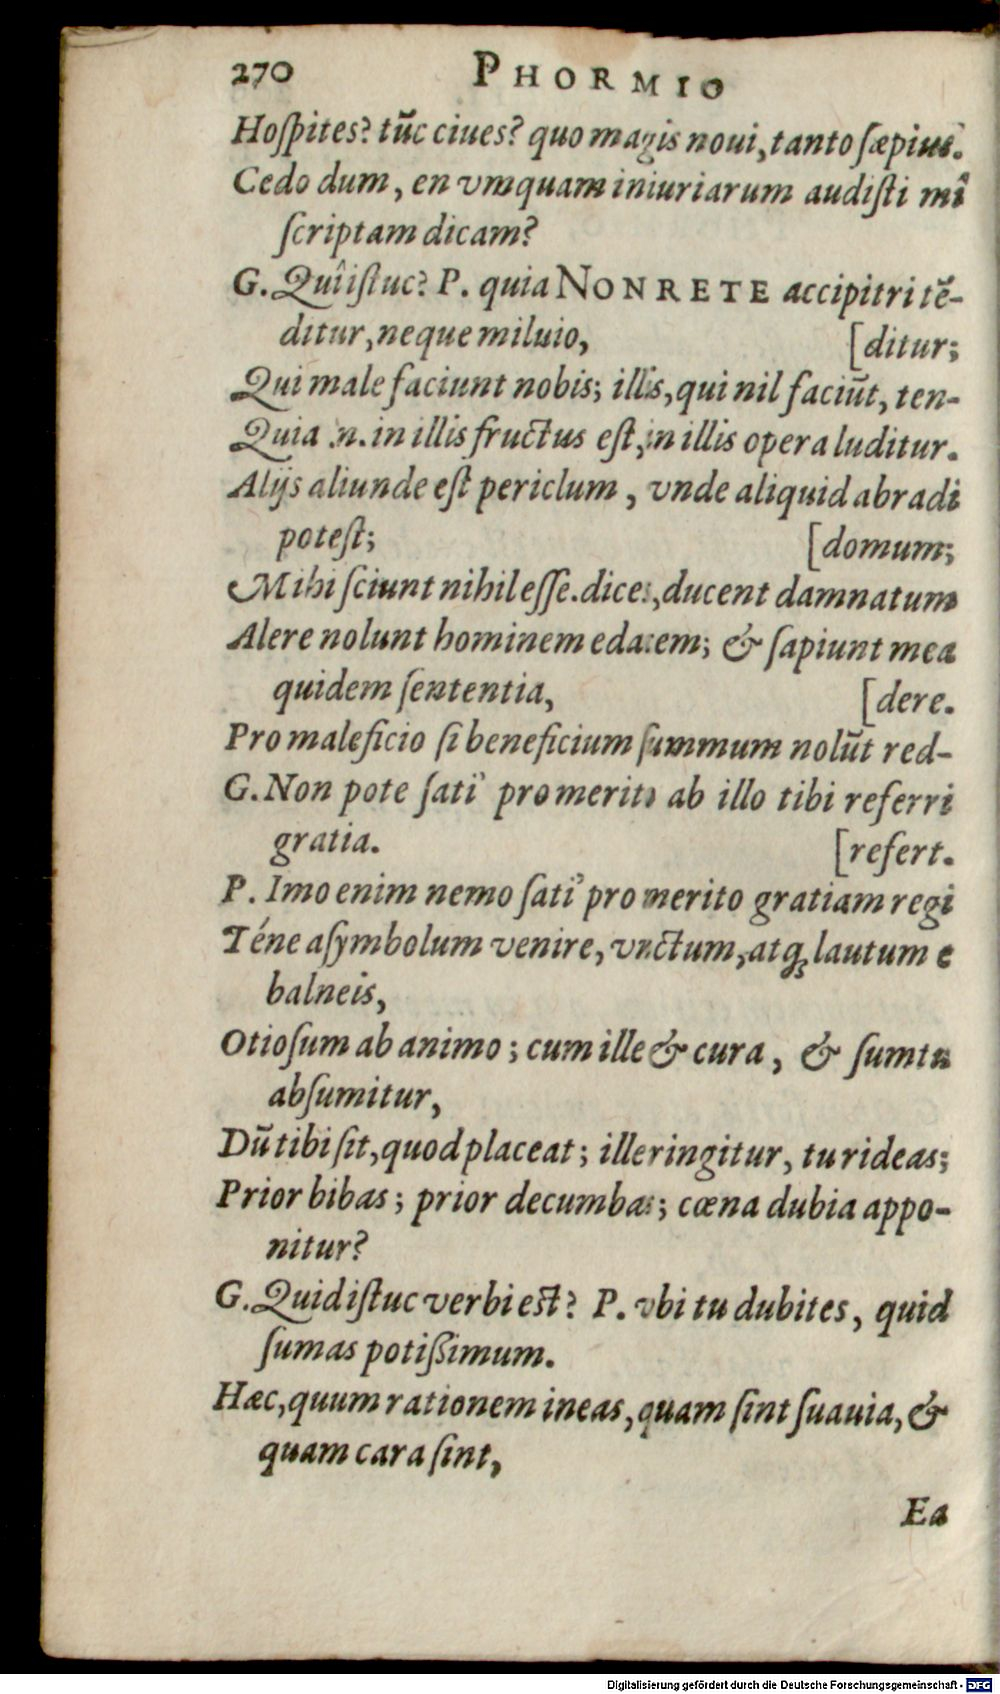 270 PHORMIO
Hoſpites? tũc ciues? quo magis noui, tanto ſæpius.
Cedo dum, en vmquam iniuriarum audiſti mî
ſcriptam dicam?
G. Quî iſtuc? P. quia NON RETE accipitri tẽ-
ditur, neque miluio, [ditur;
Qui male faciunt nobis; illis, qui nil faciũt, ten-
Quia .n. in illis fructus eſt, in illis opera luditur.
Alijs aliunde eſt periclum, vnde aliquid abradi
poteſt; [domum;
Mihi ſciunt nihil eſſe. dices, ducent damnatum
Alere nolunt hominem edacem; & ſapiunt mea
quidem ſententia, [dere.
Pro maleficio ſi beneficium ſummum nolũt red-
G. Non pote ſati' pro merito ab illo tibi referri
gratia. [refert.
P. Imo enim nemo ſati' pro merito gratiam regi
Téne aſymbolum venire, vnctum, atq; lautum e
balneis,
Otioſum ab animo; cum ille & cura, & ſumtu
abſumitur,
Dũ tibi ſit, quod placeat; ille ringitur, tu rideas;
Prior bibas; prior decumbas; cœna dubia appo-
nitur?
G. Quid iſtuc verbi est? P. vbi tu dubites, quid
ſumas potißimum.
Hæc, quum rationem ineas, quam ſint ſuauia, &
quam cara ſint,
Ea
Digitalisierung gefördert durch die Deutsche Forschungsgemeinschaft - DFG